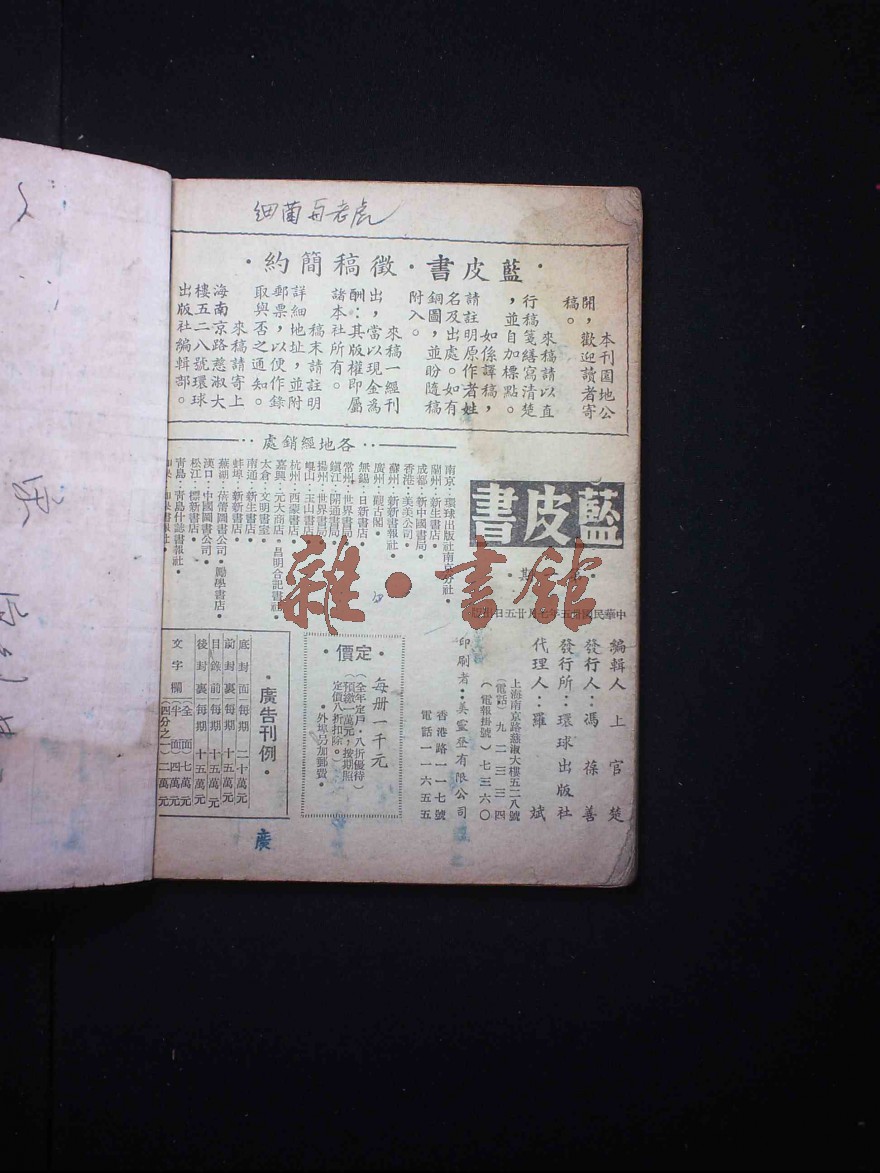 细菌与老虎
·藍皮書·徵稿簡約·
本刊園地公
開，歡迎讀者寄
稿。
來稿請以直
行稿箋繕寫清楚
，並自加標點。
如係譯稿，
請註明原作者姓
名及出處。如有
銅圖，並盼隨稿
附入。
來稿一經刊
出，當以現金為
酬：其版權即屬
諸本社所有。
稿末請註明
詳細地址，並附
郵票，以便作錄
取與否之通知。
來稿請寄上
海南京路慈淑大
樓五二八號環球
出版社編輯部。
藍皮書
期·
中華民國卅五年七月廿五日出版
編輯人：上官楚
發行人：馮葆善
發行所：環球出版社
上海南京路慈淑大樓五二八號
（電話）九二三三四
（電報掛號）七三六〇
代理人：羅斌
印刷者：美靈登有限公司
香港路一一七號
電話一一六五五
··各地經銷處··
南京：環球出版社南京分社·
蘭州：新生書店·
成都：新中國書局·
香港：美美公司·
蘇州：新新書報社·
廣州：觀古閣·
無錫：日新書店·
常州：世界書局·
鎮江：開通書局·
揚州：世界書局·
崐山：玉山書店·
杭州：西蒙書店·
嘉興：元大商店·昌明合記書社·
太倉：文明書室·
南通：新生書店·
蚌埠：新新書店·
蕪湖：蓓蕾圖書公司·勵學書店·
漢口：中國圖書公司·
松江：標新書店·
青島：青島什誌書報社·
·定價·
每册一千元
（全年定戶，八折優待）
（預繳八萬元，按期照
定價八折扣除。）
·外埠另加郵費·
·廣告刊例·
底封面每期二十萬元
前封裏每期十五萬元
目錄前每期十五萬元
後封裏每期十萬元
文字欄
全面七萬元
半面四萬元
（四分之一）二萬元
雜·書館